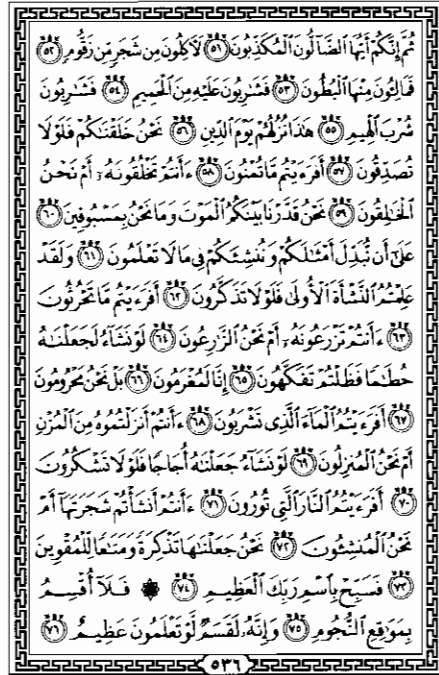 ثُمَّ إِنَّكُمْ أَيُّهَا ٱلضَّآلُّونَ ٱلْمُكَذِّبُونَ ٥١ لَأٓكِلُونَ مِن شَجَرٍ مِّن زَقُّومٍ ٥٢
فَمَالِـُٔونَ مِنْهَا ٱلْبُطُونَ ٥٣ فَشَٰرِبُونَ عَلَيْهِ مِنَ ٱلْحَمِيمِ ٥٤ فَشَٰرِبُونَ
شُرْبَ ٱلْهِيمِ ٥٥ هَٰذَا نُزُلُهُمْ يَوْمَ ٱلدِّينِ ٥٦ نَحْنُ خَلَقْنَٰكُمْ فَلَوْلَا
تُصَدِّقُونَ ٥٧ أَفَرَءَيْتُم مَّا تُمْنُونَ ٥٨ ءَأَنتُمْ تَخْلُقُونَهُۥٓ أَمْ نَحْنُ
ٱلْخَٰلِقُونَ ٥٩ نَحْنُ قَدَّرْنَا بَيْنَكُمُ ٱلْمَوْتَ وَمَا نَحْنُ بِمَسْبُوقِينَ ٦٠
عَلَىٰٓ أَن نُّبَدِّلَ أَمْثَٰلَكُمْ وَنُنشِئَكُمْ فِى مَا لَا تَعْلَمُونَ ٦١ وَلَقَدْ
عَلِمْتُمُ ٱلنَّشْأَةَ ٱلْأُولَىٰ فَلَوْلَا تَذَكَّرُونَ ٦٢ أَفَرَءَيْتُم مَّا تَحْرُثُونَ
٦٣ ءَأَنتُمْ تَزْرَعُونَهُۥٓ أَمْ نَحْنُ ٱلزَّٰرِعُونَ ٦٤ لَوْ نَشَآءُ لَجَعَلْنَٰهُ
حُطَٰمًا فَظَلْتُمْ تَفَكَّهُونَ ٦٥ إِنَّا لَمُغْرَمُونَ ٦٦ بَلْ نَحْنُ مَحْرُومُونَ
٦٧ أَفَرَءَيْتُمُ ٱلْمَآءَ ٱلَّذِى تَشْرَبُونَ ٦٨ ءَأَنتُمْ أَنزَلْتُمُوهُ مِنَ ٱلْمُزْنِ
أَمْ نَحْنُ ٱلْمُنزِلُونَ ٦٩ لَوْ نَشَآءُ جَعَلْنَٰهُ أُجَاجًا فَلَوْلَا تَشْكُرُونَ
٧٠ أَفَرَءَيْتُمُ ٱلنَّارَ ٱلَّتِى تُورُونَ ٧١ ءَأَنتُمْ أَنشَأْتُمْ شَجَرَتَهَآ أَمْ
نَحْنُ ٱلْمُنشِـُٔونَ ٧٢ نَحْنُ جَعَلْنَٰهَا تَذْكِرَةً وَمَتَٰعًا لِّلْمُقْوِينَ
٧٣ فَسَبِّحْ بِٱسْمِ رَبِّكَ ٱلْعَظِيمِ ٧٤ ۞ فَلَآ أُقْسِمُ
بِمَوَٰقِعِ ٱلنُّجُومِ ٧٥ وَإِنَّهُۥ لَقَسَمٌ لَّوْ تَعْلَمُونَ عَظِيمٌ ٧٦
٥٣٦